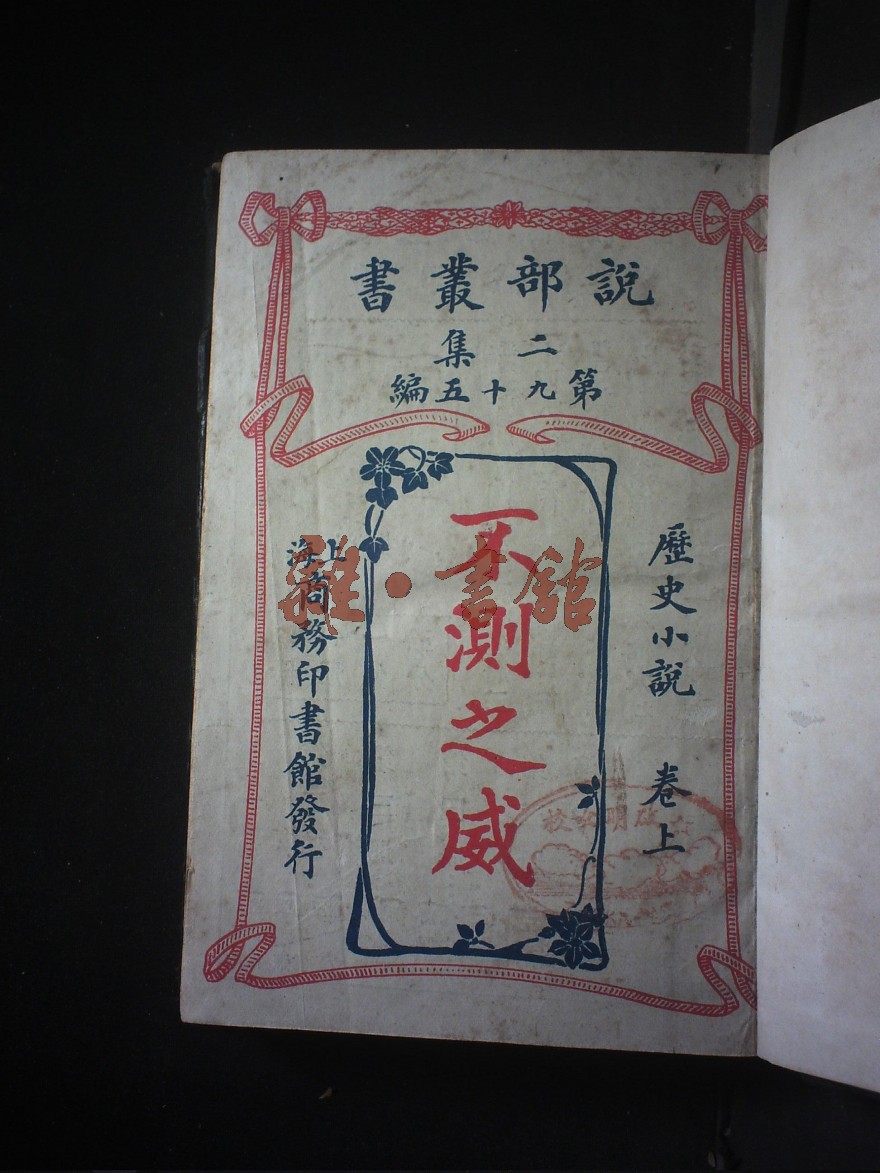 說部叢書
二集
第九十五編
歷史小說 卷上
不測之威
上海商務印書館發行
雜·書館
啟明學校